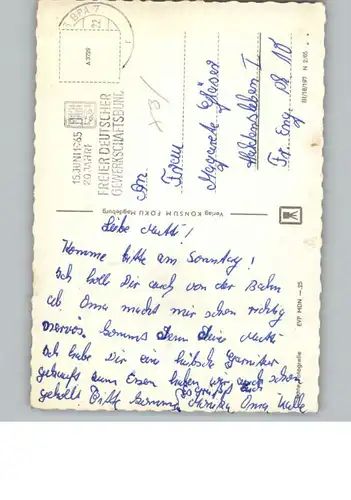 BPA 7
22
A 3729
15. JUNI 1965
20 JAHRE
FREIER DEUTSCHER
GEWERKSCHAFTSBUND
An.
Frau
Margarete Gläser
Haldensleben I
Fr. Eng. Pl 10
III/18/197 N 2/65
Verlag KONSUM FOKU Magdeburg
EVP MDN —.25
Echte Fotografie
Liebe Mutti!
Komme bitte am Sonntag!
Ich hole Dir auch von der Bahn
ab. Oma macht mir schon richtig
nervös, kommt denn deine Mutti
Ich habe Dir eine hübsche Garnitur
gekauft zum Essen haben wir auch schon
geholt. Bitte komm
Es grüßt Dich
Monika Oma